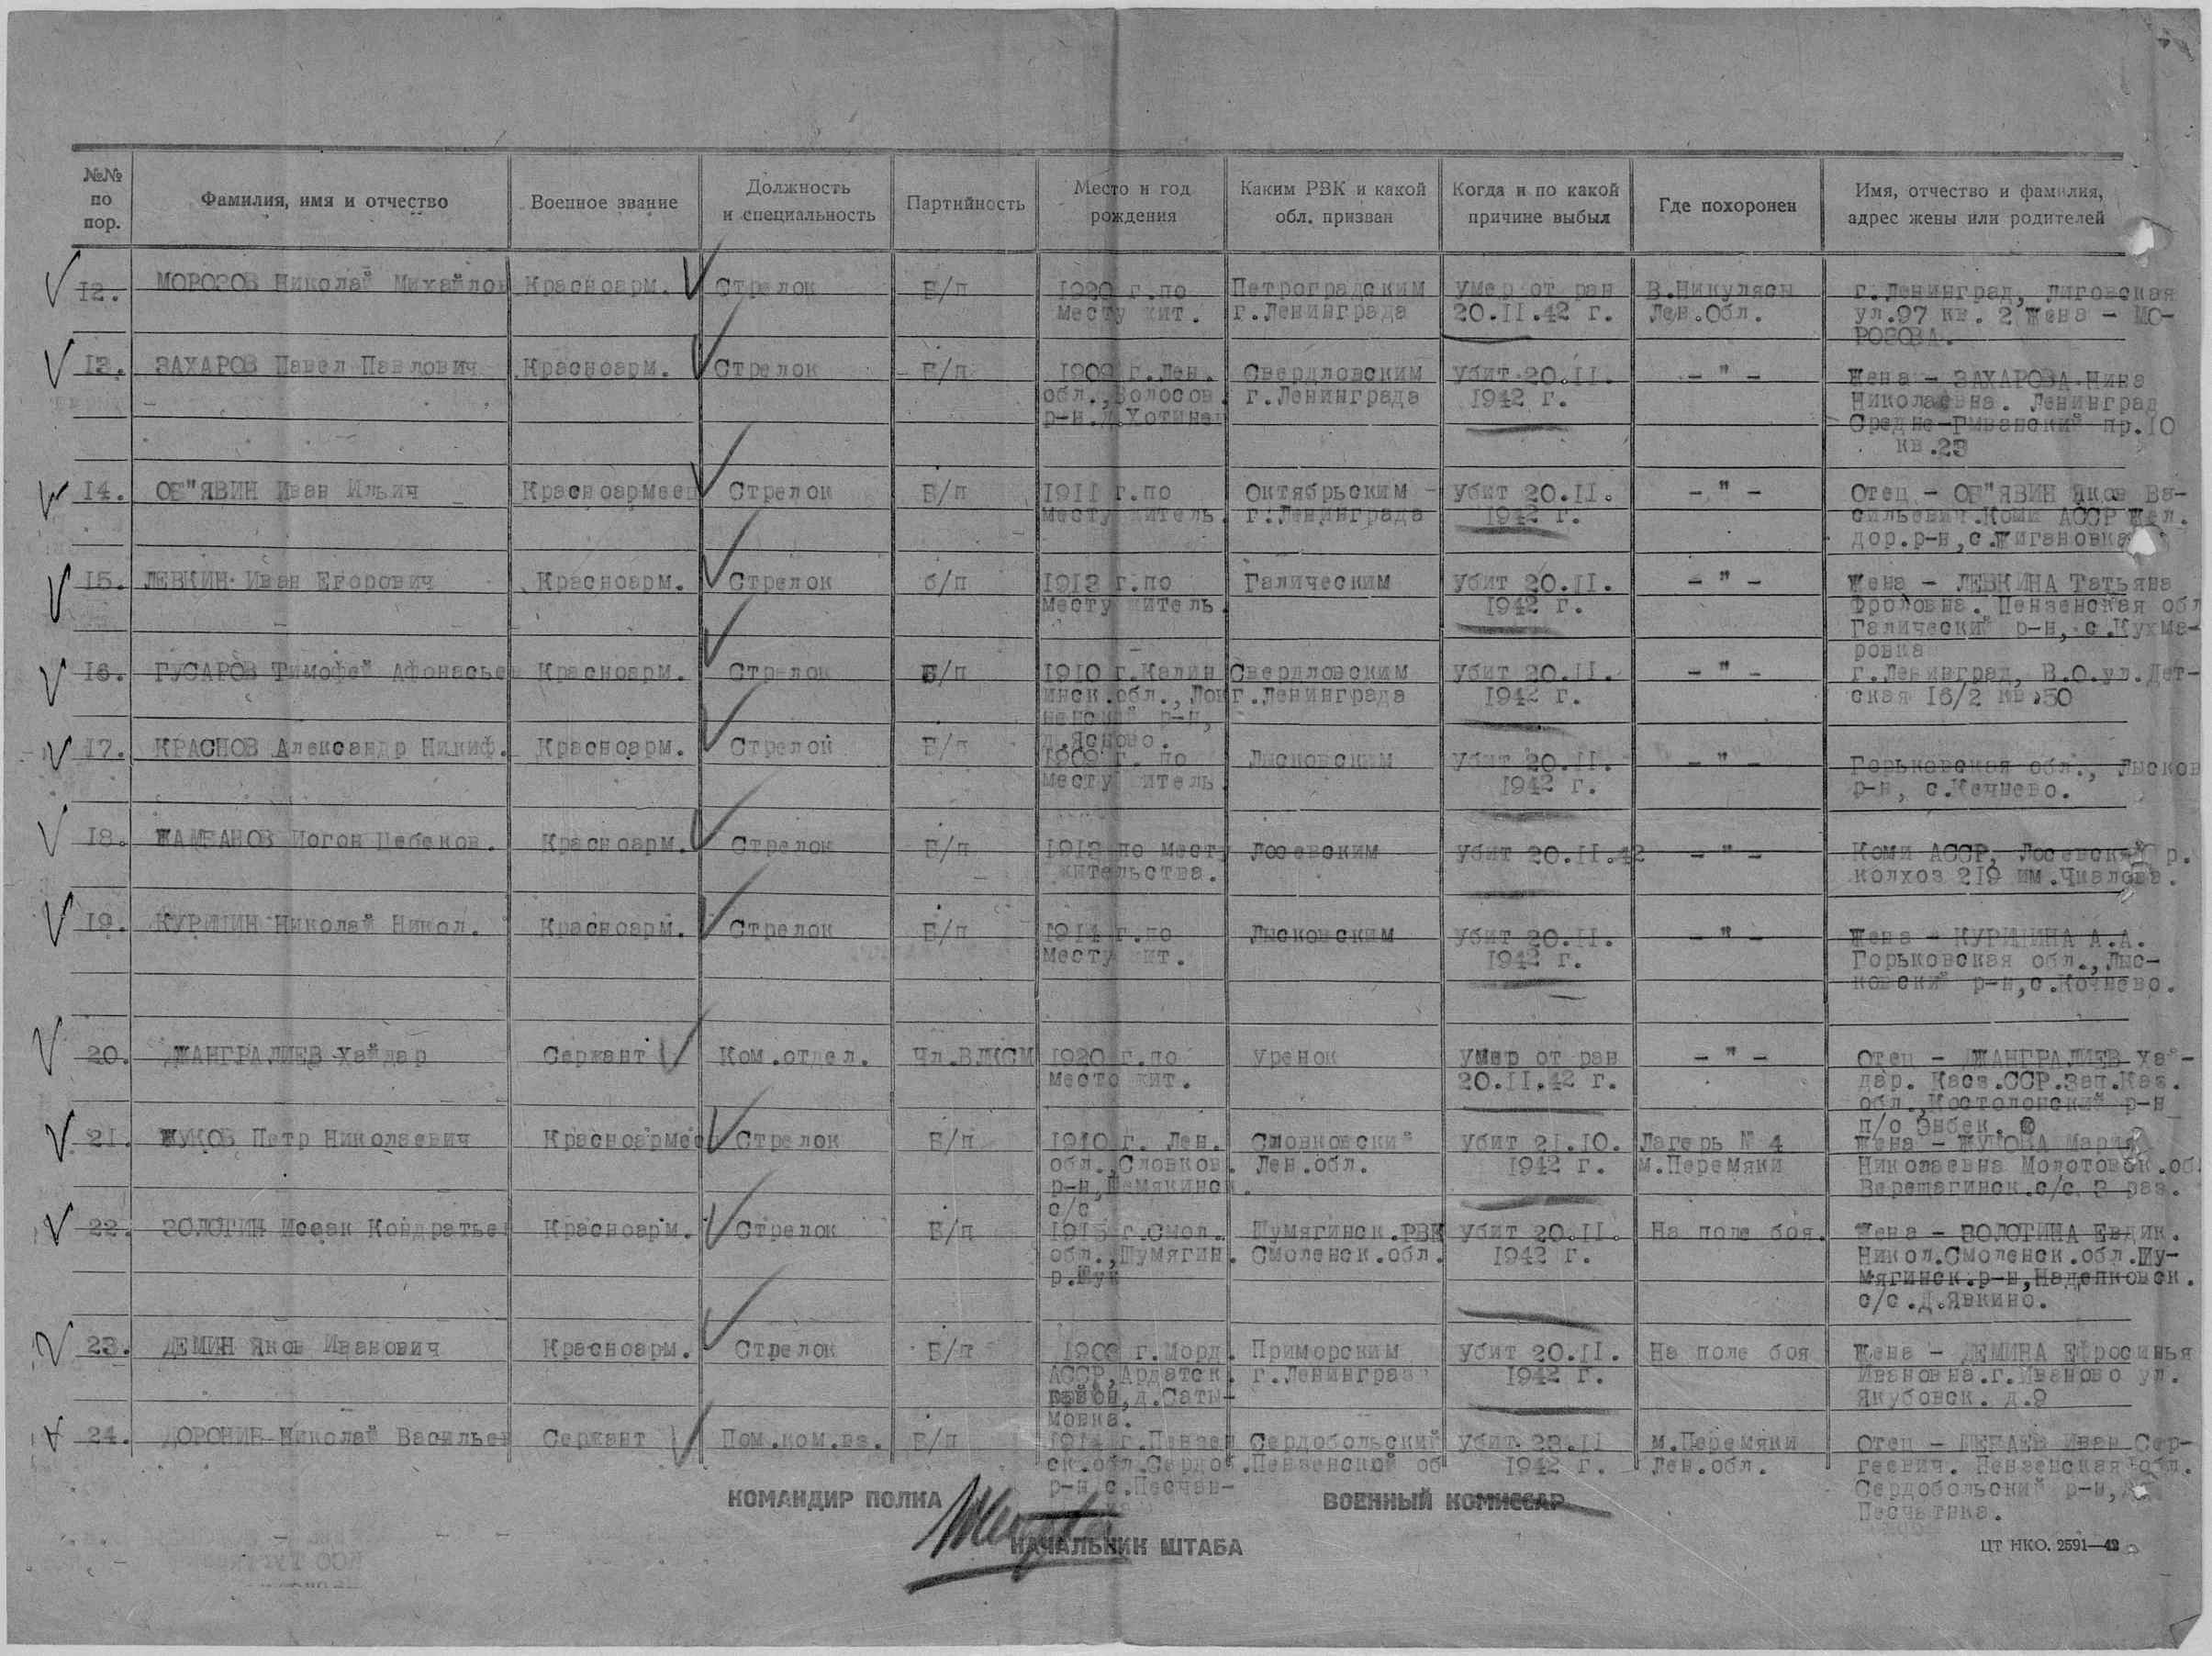 №№ по пор.
Фамилия, имя и отчество
Военное звание
Должность и специальность
Партийность
Место и год рождения
Каким РВК и какой обл. призван
Когда и по какой причине выбыл
Где похоронен
Имя, отчество и фамилия, адрес жены или родителей
12. МОРОЗОВ Николай Михайлов Красноарм. Стрелок Б/п 1920 г.по Петроградским умер от ран В.Никулясы г.Ленинград, Лиговская
месту жит. г.Ленинграда 20.II.42 г. Лен.Обл. ул.97 кв. 2 Жена – МО-
РОЗОВА.
13. ЗАХАРОВ Павел Павлович Красноарм. Стрелок Б/п 1909 г.Лен. Свердловским убит 20.II. – " – Жена – ЗАХАРОВА Нина
обл.,Волосов. г.Ленинграда 1942 г. Николаевна. Ленинград
р-н.д.Хотина Средне- пр.10
кв.23
14. ОБ"ЯВИН Иван Ильич Красноармеец Стрелок Б/п 1911 г.по Октябрьским убит 20.II. – " – Отец – ОБ"ЯВИН Яков Ва-
месту житель. г.Ленинграда 1942 г. сильевич.Коми АССР Жел.
дор.р-н,с.Жигановка
15. ЛЕВКИН Иван Егорович Красноарм. Стрелок б/п 1913 г.по Галическим убит 20.II. – " – Жена – ЛЕВКИНА Татьяна
месту житель. 1942 г. Фроловна. Пензенская обл
Галический р-н, с.Кухма-
ровка
16. ГУСАРОВ Тимофей Афонасьев Красноарм. Стрелок Б/п 1910 г.Калин Свердловским убит 20.II. – " – г.Ленинград, В.О.ул.Дет-
инск.обл., Лок г.Ленинграда 1942 г. ская 16/2 кв.50
ненский р-н,
д.Ясново.
17. КРАСНОВ Александр Никиф. Красноарм. Стрелок Б/п 1909 г. по Лысковским убит 20.II. – " – Горьковская обл., Лысков
месту житель. 1942 г. р-н, с.Кечнево.
18. ЖАМБАНОВ Иогон Цебеков. Красноарм. Стрелок Б/п 1913 по месту Лосевским убит 20.II.42 – " – Коми АССР, Лосевский р.
жительства. колхоз 219 им.Чкалова.
19. КУРИЦИН Николай Никол. Красноарм. Стрелок Б/п 1914 г.по Лысковским убит 20.II. – " – Жена – КУРИЦИНА А.А.
месту жит. 1942 г. Горьковская обл.,Лыс-
ковский р-н,с.Кочнево.
20. ДЖАНГРАЛИЕВ Хайдар Сержант Ком.отдел. Чл.ВЛКСМ 1920 г.по Уренок умер от ран – " – Отец – ДЖАНГРАЛИЕВ Хай-
место жит. 20.II.42 г. дар. Каоз.ССР.Зап.Каз.
обл.,Костолонский р-н
п/о Энбек.
21. ЖУКОВ Петр Николаевич Красноармеец Стрелок Б/п 1910 г. Лен. Словковский убит 21.10. Лагерь № 4 Жена – ЖУКОВА Мария
обл.,Словков. Лен.обл. 1942 г. м.Перемяки Николаевна Молотовск.об.
р-н,Шемякинск. Верещагинск.с/с 3 раз.
с/с
22. ЗОЛОТИН Исаак Кондратьев Красноарм. Стрелок Б/п 1915 г.Смол. Шумягинск.РВК убит 20.II. На поле боя. Жена – ЗОЛОТИНА Евдик.
обл.,Шумягин. Смоленск.обл. 1942 г. Никол.Смоленск.обл.Шу-
р. мягинск.р-н,Надепковск.
с/с.д.Явкино.
23. ДЕМИН Яков Иванович Красноарм. Стрелок Б/п 1903 г.Морд. Приморским убит 20.II. На поле боя Жена – ДЕМИНА Ефросинья
АССР,Ардатск. г.Ленинград 1942 г. Ивановна.г.Иваново ул.
район,д.Саты- Якубовск. д.9
мовка.
24. ДОРОНИН Николай Васильев Сержант Пом.ком.вз. Б/п 1914 г.Пензен Сердобольский убит 23.II м.Перемяки Отец – ШЕКАЕВ Иван Сер-
ск.обл.Сердоб. Пензенской об 1942 г. Лен.обл. геевич. Пензенская обл.
р-н,с.Песчан- Сердобольский р-н,
Песчатика.
КОМАНДИР ПОЛКА ВОЕННЫЙ КОМИССАР
НАЧАЛЬНИК ШТАБА
ЦТ НКО. 2591—42